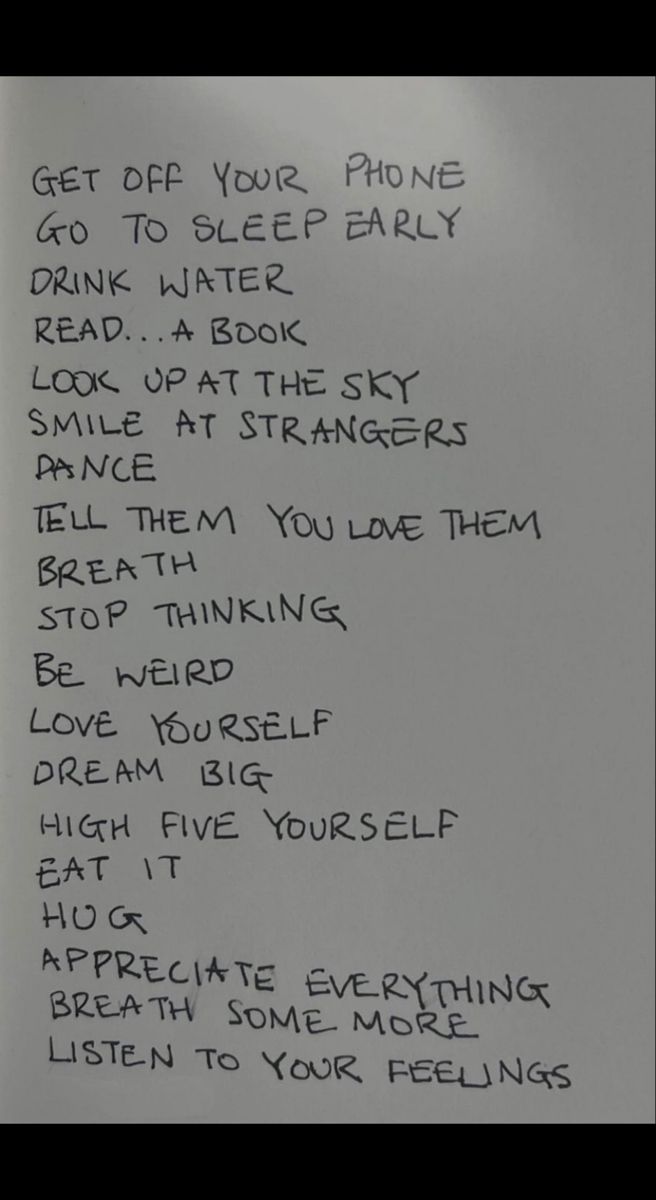 GET OFF YOUR PHONE
GO TO SLEEP EARLY
DRINK WATER
READ... A BOOK
LOOK UP AT THE SKY
SMILE AT STRANGERS
DANCE
TELL THEM YOU LOVE THEM
BREATH
STOP THINKING
BE WEIRD
LOVE YOURSELF
DREAM BIG
HIGH FIVE YOURSELF
EAT IT
HUG
APPRECIATE EVERYTHING
BREATH SOME MORE
LISTEN TO YOUR FEELINGS